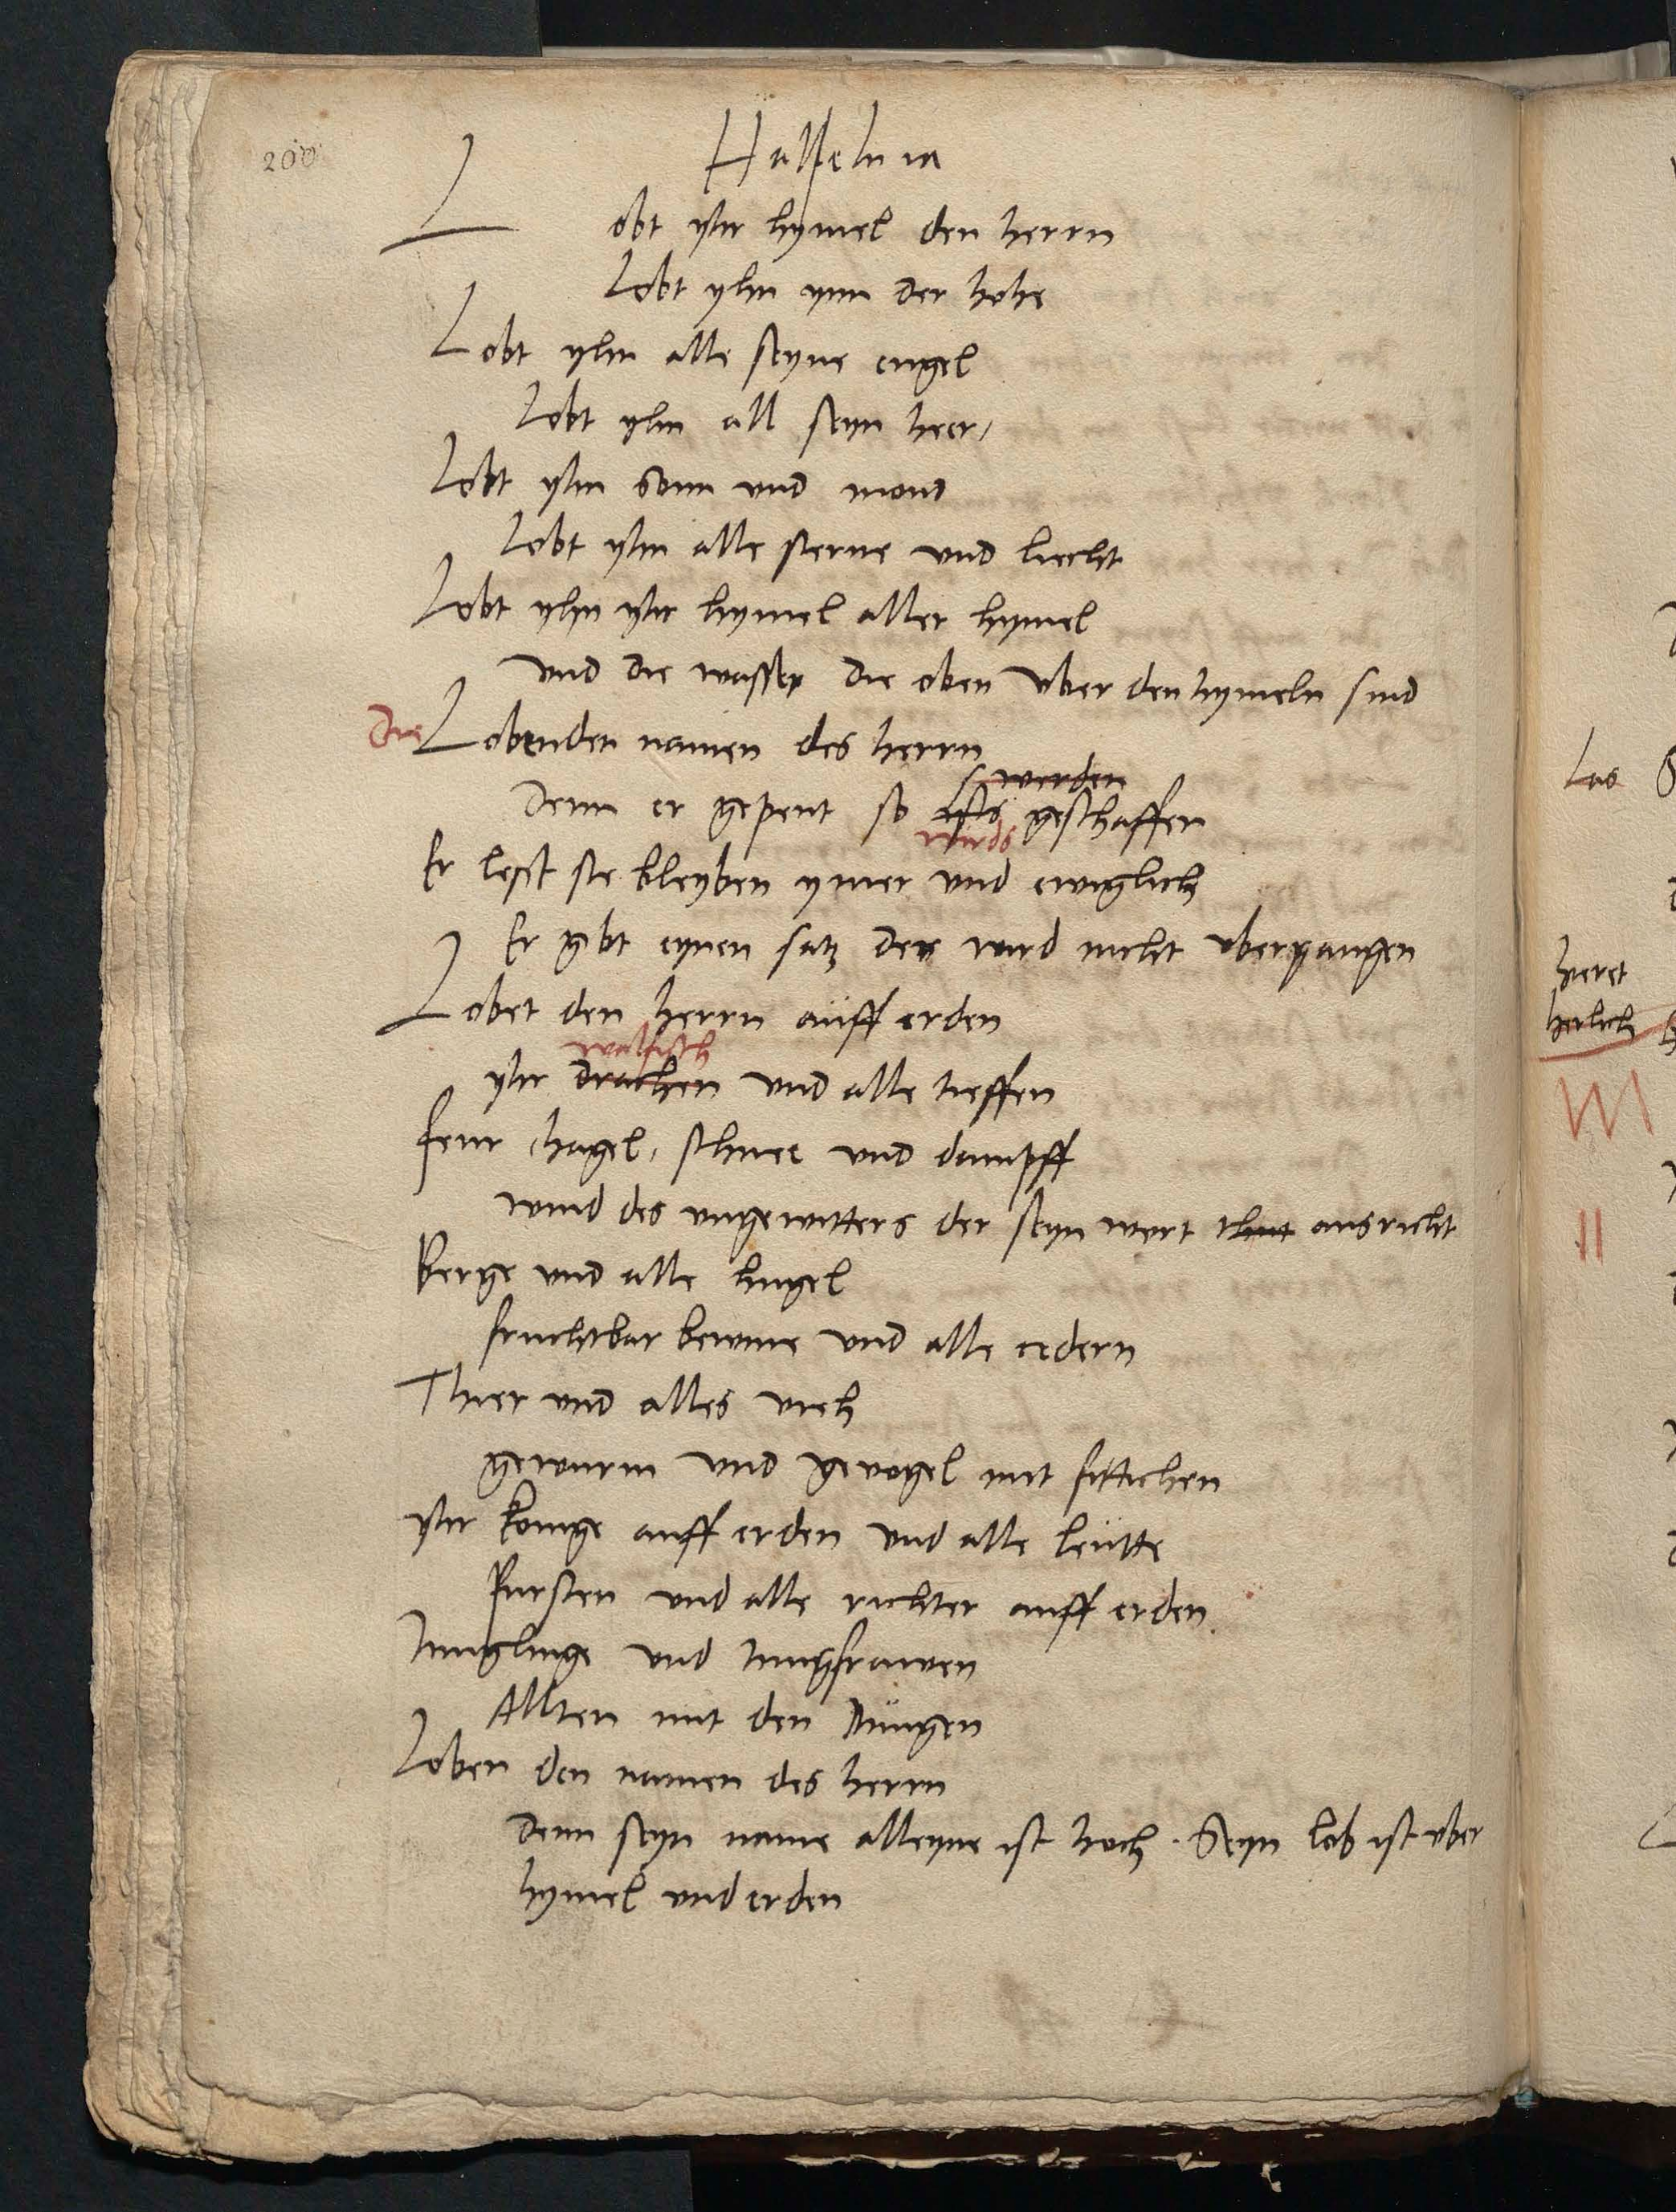 200
Halleluia
Lobt yhr hymel den herrn
Lobt yhn ynn der hohe
Lobt yhn alle seyne engel
Lobt yhn all seyn heer,
Lobt yhn Sonn und mond
Lobt yhn alle sterne und liecht
Lobt yhn yhr hymel aller hymel
und die wasser die oben uber den hymeln sind
Die Loben den namen des herrn
werden
Denn er gepeut so ists geschaffen
wirds
Er lesst sie bleyben ymer und ewiglich
Er gibt eynen satz der wird nicht ubergangen
Lobet den herrn auff erden
walfisch
yhr drachen und alle tieffen
feur, hagel, schnee und dampff
wind des ungewitters der seyn wort thut ausricht
Berge und alle hugel
fruchtbar bewme und alle cedern
Thier und alles vieh
gewurm und gevogel mit fittichen
yhr konige auff erden und alle leutte
Fursten und alle richter auff erden.
Junglinge und Jungfrawen
Allten mit den Jungen
Loben den namen des herrn
denn seyn name alleyne ist hoch. Seyn lob ist uber
hymel und erden
Las
herlich